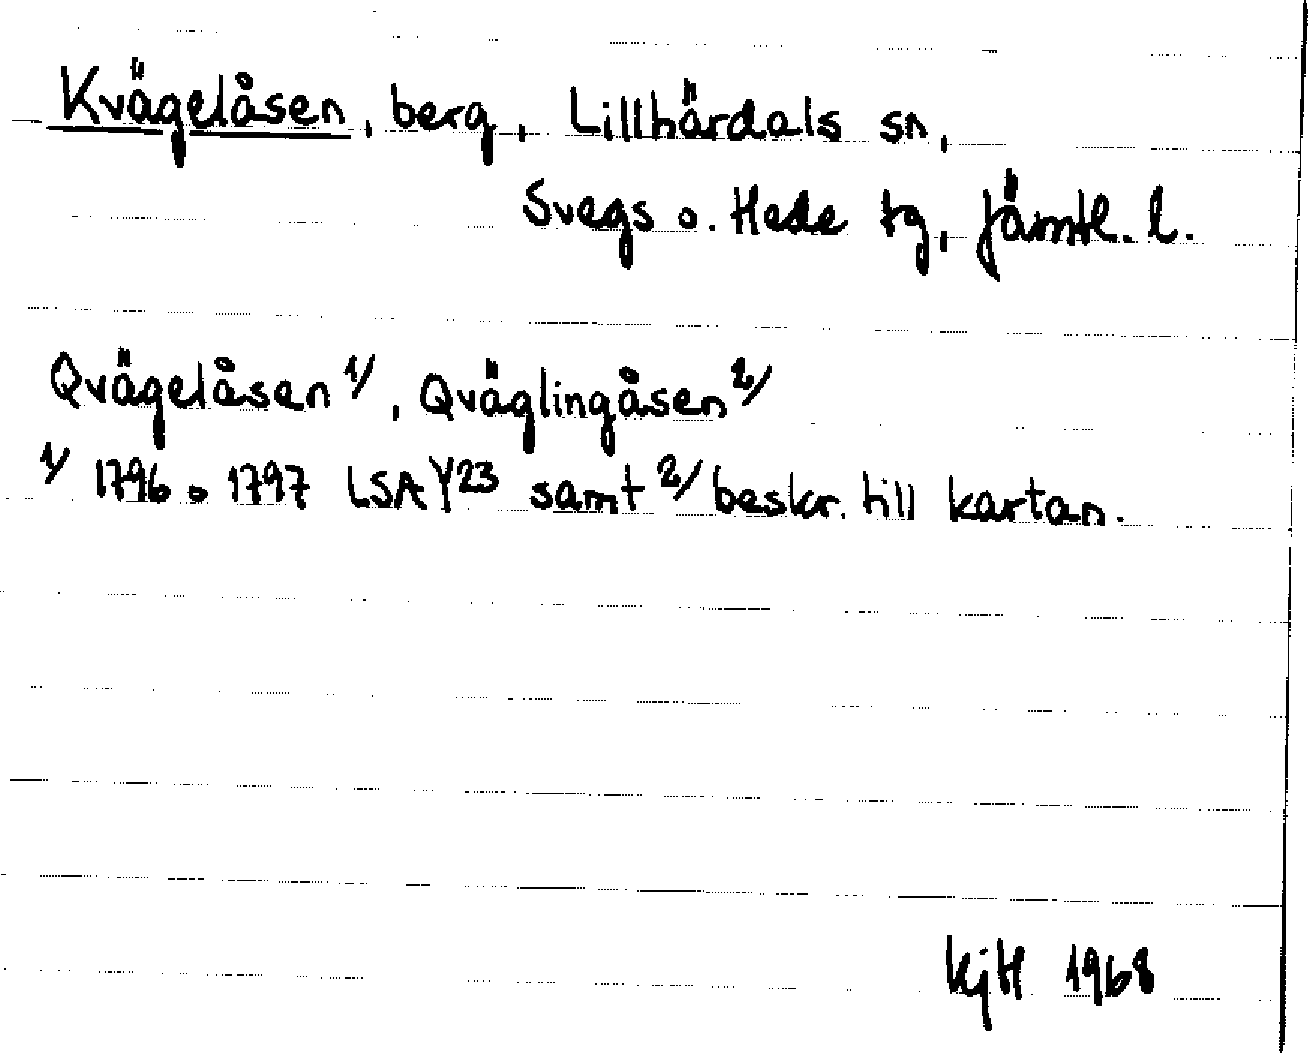 Kvägelåsen, berg, Lillhärdals sn,
Svegs o. Hede tg, Jämtl. l.
Qvägelåsen 1/, Qväglingåsen 2/
1/ 1796 o 1797 LSA Y23 samt 2/ beskr. till kartan.
KjH 1968